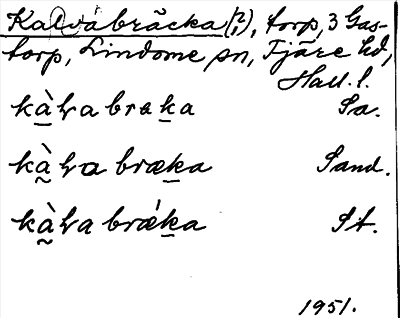 Kalvabräcka (?), torp, 3 Gas-
torp, Lindome sn, Fjäre hd,
Hall. l.
kàlva braka Sa.
kàlva bræka Sand.
kàlva brǽka St.
1951.